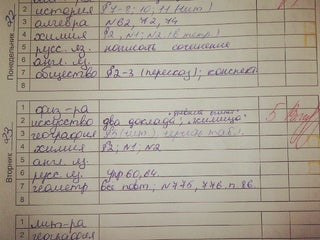 Понедельник 22
2 история §7-8; 10, 11 (чит)
3 алгебра №62, 72, 74
4 химия §2, №1, №2 (в тетр)
5 русс. яз. написать сочинение
6 англ. яз.
7 общество §2-3 (пересказ); конспект
8
Вторник 23
1 физ-ра
2 искусство два доклада, жилища
3 география §5 (чит), табл.
4 химия §2; №1; №2
5 англ. яз.
6 русс. яз. упр. 60, 64.
7 геометр. все повт., №775, 776. п. 86.
8
1 лит-ра
2 география